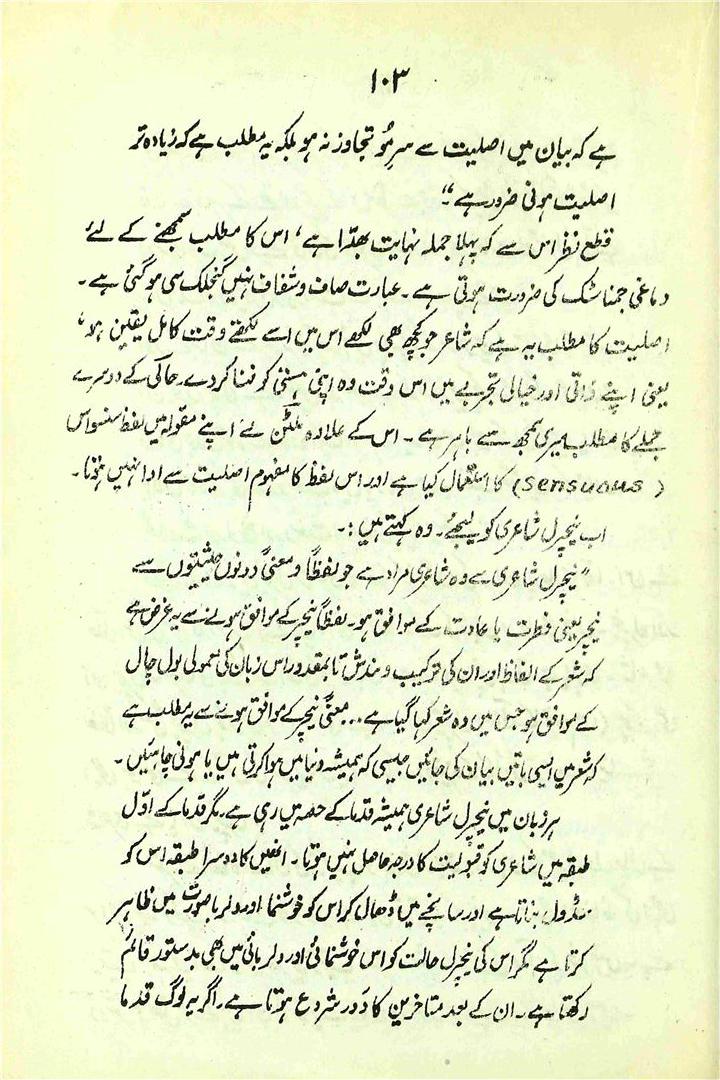 ۱۰۳
ہے کہ بیان میں اصلیت سے سرِمُو تجاوز نہ ہو بلکہ یہ مطلب ہے کہ زیادہ تر
اصلیت ہونی ضرور ہے“۔
قطع نظر اس سے کہ پہلا جملہ نہایت بھدّا ہے، اس کا مطلب سمجھنے کے لئے
دماغی جمناسٹک کی ضرورت ہوتی ہے۔ عبارت صاف و شفاف نہیں گنجلک سی ہو گئی ہے۔
اصلیت کا مطلب یہ ہے کہ شاعر جو کچھ بھی لکھے اس میں اسے لکھتے وقت کامل یقین ہو،
یعنی اپنے ذاتی اور خیالی تجربے میں اس وقت وہ اپنی ہستی کو فنا کر دے۔ حالی کے دوسرے
جملے کا مطلب میری سمجھ سے باہر ہے۔ اس کے علاوہ ملٹن نے اپنے مقولہ میں لفظ سنسواس
(Sensuous) کا استعمال کیا ہے اور اس لفظ کا مفہوم اصلیت سے ادا نہیں ہوتا۔
اب نیچرل شاعری کو لیجئے۔ وہ کہتے ہیں :۔
”نیچرل شاعری سے وہ شاعری مراد ہے جو لفظاً و معنیً دونوں حیثیتوں سے
نیچر یعنی فطرت یا عادت کے موافق ہو۔ لفظاً نیچر کے موافق ہونے سے یہ غرض ہے
کہ شعر کے الفاظ اور ان کی ترکیب و بندش تا بمقدور اس زبان کی معمولی بول چال
کے موافق ہو جس میں وہ شعر کہا گیا ہے... معنیً نیچر کے موافق ہونے سے یہ مطلب ہے
کہ شعر میں ایسی باتیں بیان کی جائیں جیسی کہ ہمیشہ دنیا میں ہوا کرتی ہیں یا ہونی چاہئیں۔
ہر زبان میں نیچرل شاعری ہمیشہ قدما کے حصہ میں رہی ہے۔ مگر قدما کے اوّل
طبقہ میں شاعری کو قبولیت کا درجہ حاصل نہیں ہوتا۔ انھیں کا دوسرا طبقہ اس کو
سڈول بناتا ہے اور سانچے میں ڈھال کر اس کو خوشنما اور دلربا صورت میں ظاہر
کرتا ہے مگر اس کی نیچرل حالت کو اس خوشنمائی اور دلربائی میں بھی بدستور قائم
رکھتا ہے۔ ان کے بعد متاخرین کا دَور شروع ہوتا ہے۔ اگر یہ لوگ قدما